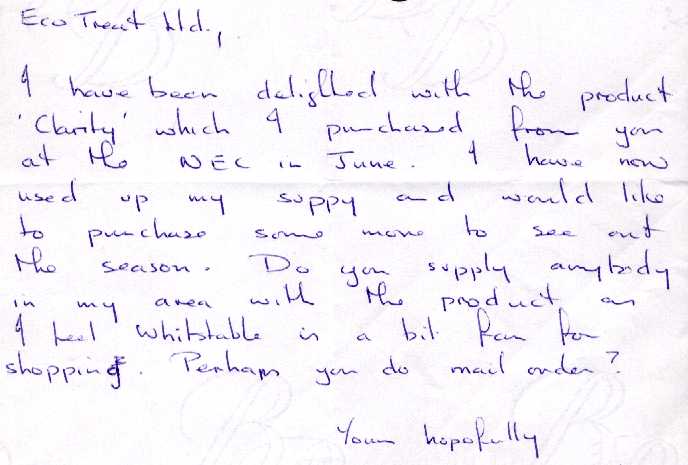 Eco Treat Ltd.,
I have been delighted with the product
'Clarity' which I purchased from you
at the NEC in June. I have now
used up my suppy and would like
to purchase some more to see out
the season. Do you supply anybody
in my area with the product as
I feel Whitstable is a bit far for
shopping. Perhaps you do mail order?
Yours hopefully